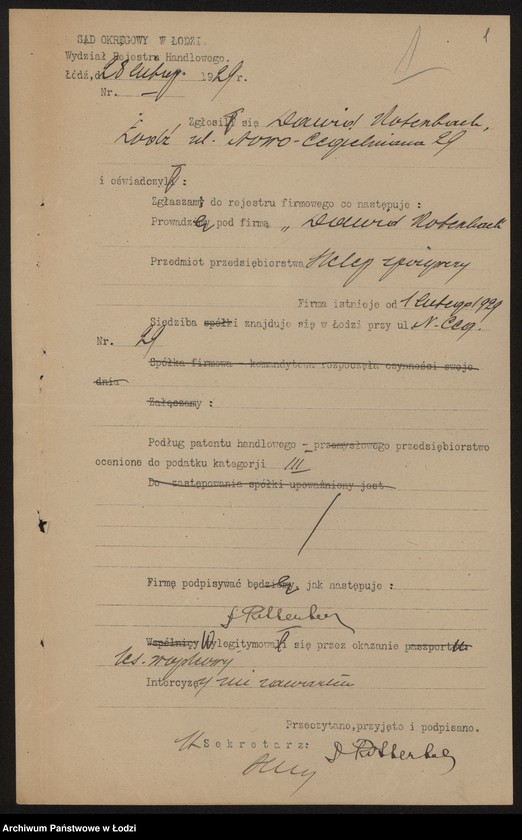 SĄD OKRĘGOWY W ŁODZI.
1
Wydział Rejestru Handlowego.
Łódź, d. 28 lutego 1929 r.
Nr. —
Zgłosił się Dawid Rotenbach,
Łódź ul. Nowo-Cegielniana 29
i oświadczył:
Zgłaszam do rejestru firmowego co następuje :
Prowadzę pod firmą „Dawid Rotenbach"
Przedmiot przedsiębiorstwa sklep spożywczy
Firma istnieje od 1 lutego 1929
Siedziba spółki znajduje się w Łodzi przy ul. N.-Ceg.
Nr. 29
Spółka firmowa - komandytowa rozpoczęła czynności swoje
dnia
Załączamy :
Podług patentu handlowego - przemysłowego przedsiębiorstwo
ocenione do podatku kategorji III
Do zastępowania spółki upoważniony jest
Firmę podpisywać będę, jak następuje :
Wspólnicy Wylegitymował się przez okazanie paszportu
ks. wojskowy
Intercyzy nie zawarłem
Przeczytano, przyjęto i podpisano.
Sekretarz:
Archiwum Państwowe w Łodzi